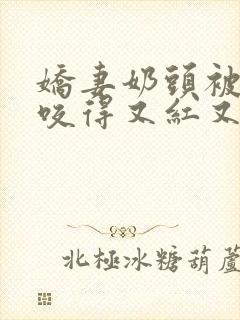 嬌妻奶頭被
咬得又紅又
北極冰糖葫蘆